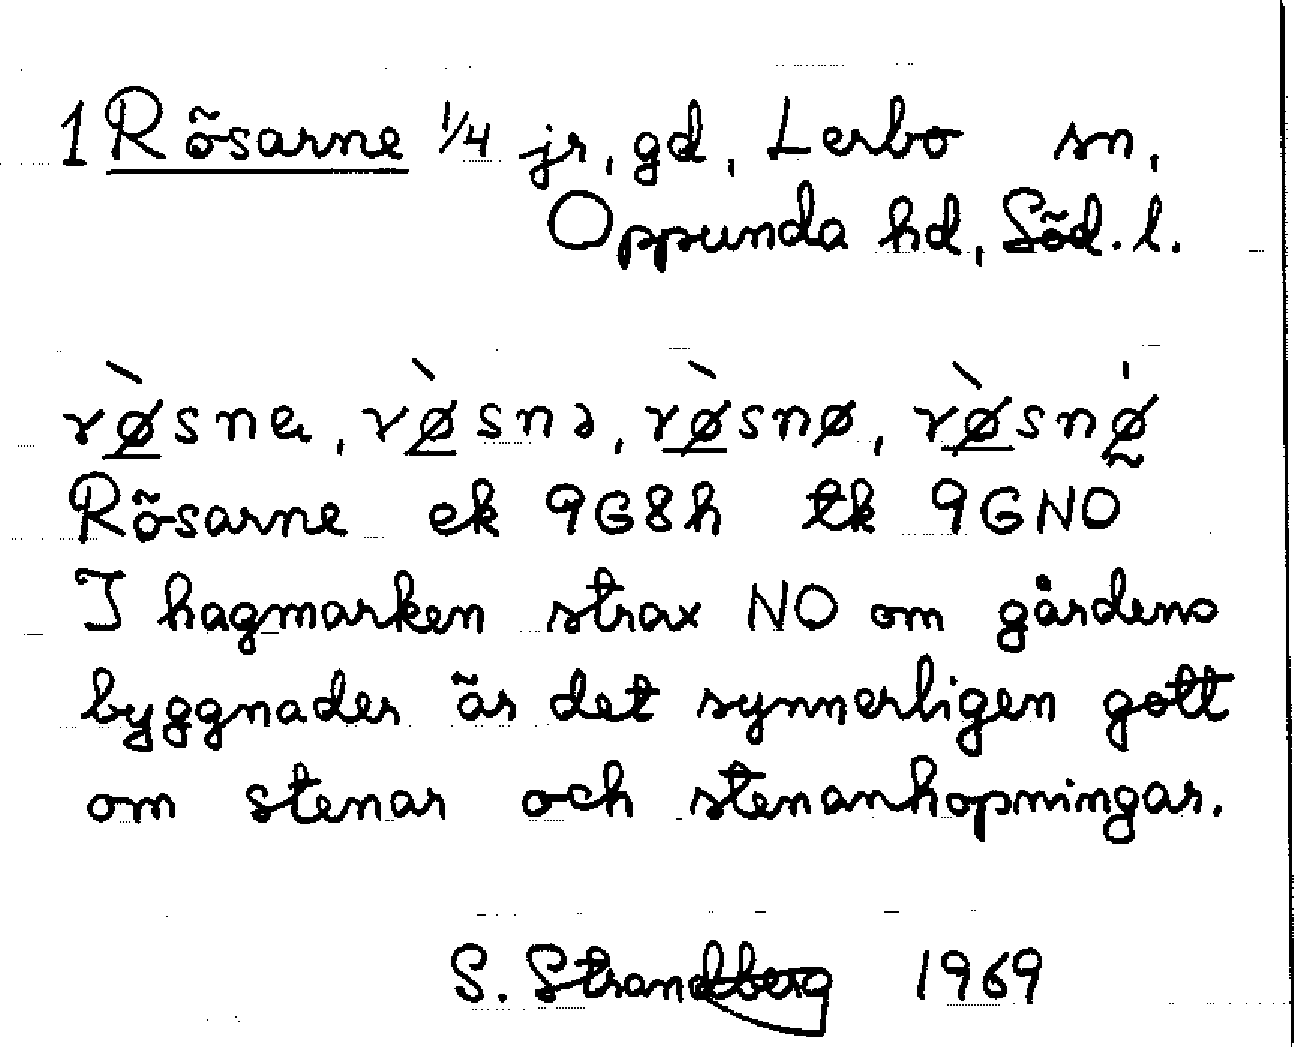 1 Rösarne 1/4 jr, gd, Lerbo sn,
Oppunda hd, Söd. l.
rø̀sna, rø̀snə, rø̀snø, rø̀snǿ̰
Rösarne ek 9G8h tk 9GNO
I hagmarken strax NO om gårdens
byggnader är det synnerligen gott
om stenar och stenanhopningar.
S. Strandberg 1969